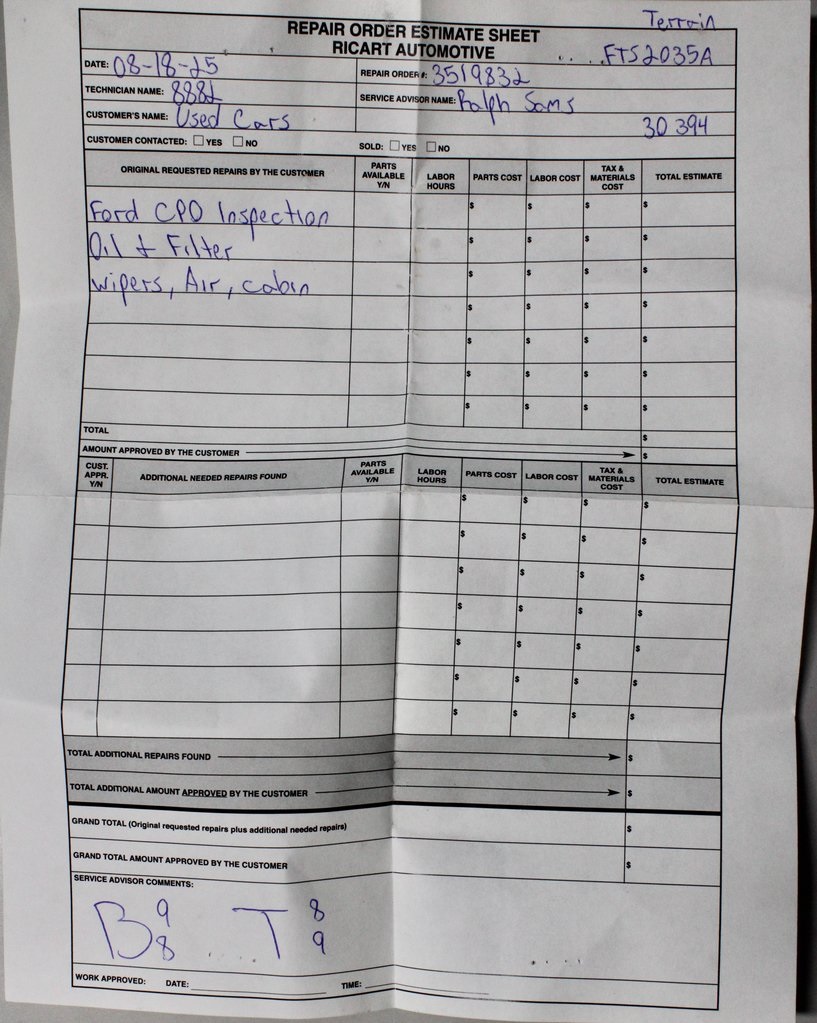 Terrain
REPAIR ORDER ESTIMATE SHEET
RICART AUTOMOTIVE
FTS2035A
DATE: 08-18-25
REPAIR ORDER #: 3519832
TECHNICIAN NAME: 8882
SERVICE ADVISOR NAME: Ralph Sams
CUSTOMER'S NAME: Used Cars
30 394
CUSTOMER CONTACTED: ☐ YES ☐ NO SOLD: ☐ YES ☐ NO
ORIGINAL REQUESTED REPAIRS BY THE CUSTOMER PARTS AVAILABLE Y/N LABOR HOURS PARTS COST LABOR COST TAX & MATERIALS COST TOTAL ESTIMATE
Ford CPO Inspection $ $ $ $
Oil + Filter $ $ $ $
wipers, Air, cabin $ $ $ $
$ $ $ $
$ $ $ $
$ $ $ $
$ $ $ $
TOTAL $
AMOUNT APPROVED BY THE CUSTOMER $
CUST. APPR. Y/N ADDITIONAL NEEDED REPAIRS FOUND PARTS AVAILABLE Y/N LABOR HOURS PARTS COST LABOR COST TAX & MATERIALS COST TOTAL ESTIMATE
$ $ $ $
$ $ $ $
$ $ $ $
$ $ $ $
$ $ $ $
$ $ $ $
$ $ $ $
TOTAL ADDITIONAL REPAIRS FOUND $
TOTAL ADDITIONAL AMOUNT APPROVED BY THE CUSTOMER $
GRAND TOTAL (Original requested repairs plus additional needed repairs) $
GRAND TOTAL AMOUNT APPROVED BY THE CUSTOMER $
SERVICE ADVISOR COMMENTS:
B 9 8 T 8 9
WORK APPROVED: DATE: TIME: